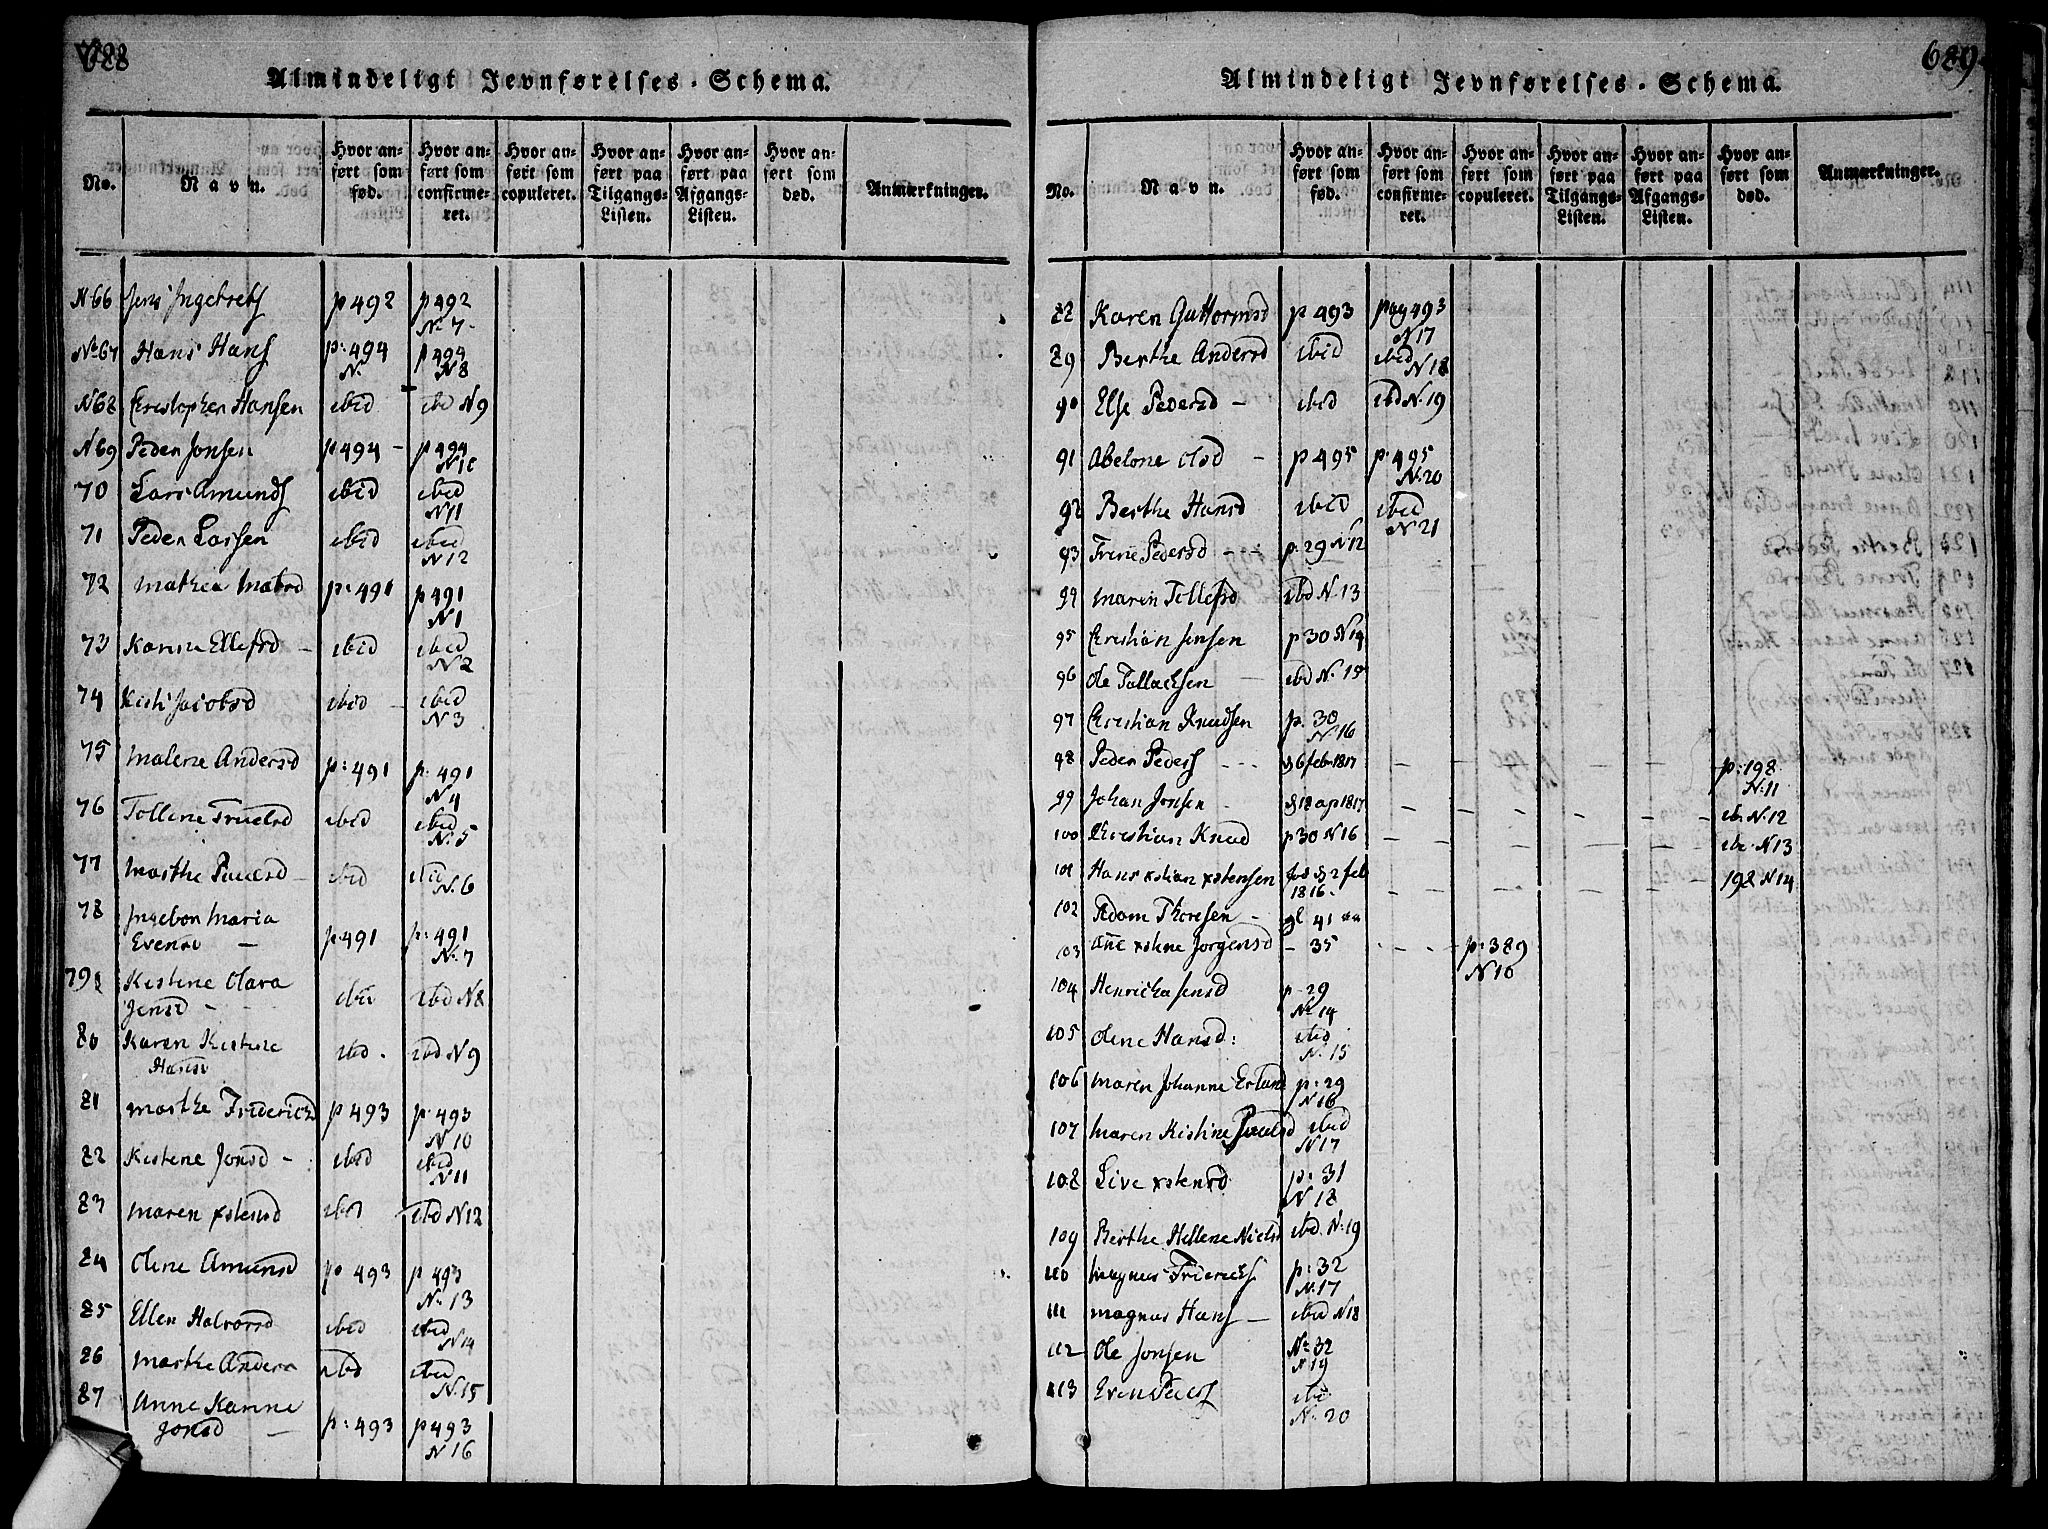 688
Almindeligt Jevnførelses-Schema.
No. Navn. Hvor anført som fød. Hvor anført som confirmeret. Hvor anført som copuleret. Hvor anført paa Tilgangs-Listen. Hvor anført paa Afgangs-Listen. Hvor anført som død. Anmærkninger.
N 66 Jens Ingebrets p 492 p 492 No 7
No 67 Hans Hans p: 494 N. p 494 N 8
N 68 Christopher Hansen ibid ibd N 9
N 69 Peder Jonsen p 494 - p 494 N 10
70 Lars Amunds ibid ibid N 11
71 Peder Larsen ibid ibid N 12
72 Mathea p: 491 p 491 N 1
73 Karine Ellefsd - ibid ibid N 2
74 Kisti Jacobsd ibid - ibid N 3
75 Malene Andersd p: 491 p: 491 N 4
76 Tollene Truelsd ibid ibid N. 5
77 Marthe - ibid ibid N. 6
78 Ingebor Maria
Evensd - p: 491 p: 491 N. 7
79 Kistine Clara
Jensd - ibid ibd N 8
80 Karen Kistine
Hansd ibd. ibd N 9
81 Marthe Friderichs p 493 p: 493 N 10
82 Kistene Jonsd - ibid ibid N 11
83 Maren xstensd ibd ibd N 12
84 Olene Amunsd p 493 p 493 N. 13
85 Ellen Halvorsd ibid ibid N 14
86 Marthe Anders ibd ibid N. 15
87 Anne Karine
Jonsd - p: 493 p 493 N 16
689
Almindeligt Jevnførelses-Schema.
No. Navn. Hvor anført som fød. Hvor anført som confirmeret. Hvor anført som copuleret. Hvor anført paa Tilgangs-Listen. Hvor anført paa Afgangs-Listen. Hvor anført som død. Anmærkninger.
88 Karen Guttormsd p 493 pag 493 N 17
89 Berthe Andersd ibid ibid N 18
90 Else Pedersd - ibid ibd N. 19
91 Abelone Olsd - p 495 p: 495 N. 20
92 Berthe Hansd ibid ibid N 21
93 Trine Pedersd - - p: 29 N 12
94 Maren Tollefsd ibd N. 13
95 Christian Jensen p 30 N 14
96 Ole Tollachsen - ibd N. 15
97 Christian Knudsen p. 30 N. 16
98 Peder Peders - - - d 6 feb 1817 - - - - p: 198 N. 11
99 Johan Jonsen d 18 ap 1817 - - - - - ib. N. 12
100 Christian Knud p 30 N 16 - - - - ibe. N 13
101 Hans xstian xstensen fød d 2 feb 1816. - - - - 198 N 14
102 Adam Thoresen - gl 41 aar
103 Ane xstine Jorgensd - 35 - - - p: 389 N 10
104 Henricha Jensd p 29 No 14
105 Olene Hansd: ibid N. 15
106 Maren Johanne Erland p: 29 N 16
107 Maren Kistine ibid N 17
108 Live xstensd p: 31 N 18
109 Berthe Hellene Niels ibd. N. 19
110 Magnus Friderichs p: 32 N. 17
111 Magnus Hans - ibid N 18
112 Ole Jonsen No 32 N 19
113 Even ibid N. 20